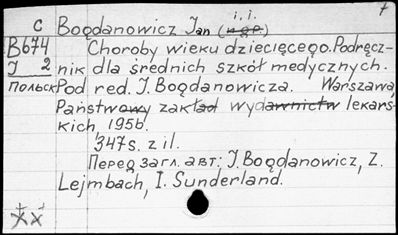 7
i. i.
C Bogdanowicz Jan (и др.)
B674 Choroby wieku dziecięcego. Podręcz-
J 2 nik dla średnich szkół medycznych.
польск Pod red. J. Bogdanowicza. Warszawa,
Państwowy zakład wydawnictw lekars-
kich, 1956.
347s. z il.
Перед загл. авт: J. Bogdanowicz, Z.
Lejmbach, I. Sunderland.